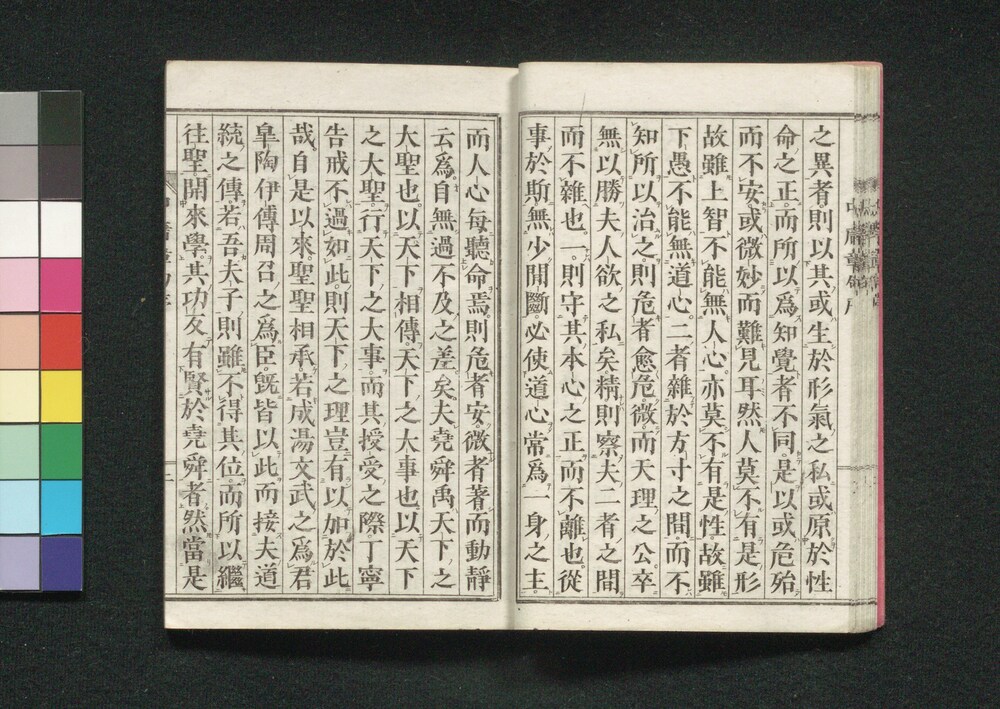 之異者則以其或生於形氣之私或原於性
命之正而所以爲知覺者不同是以或危殆
而不安或微妙而難見耳然人莫不有是形
故雖上智不能無人心亦莫不有是性故雖
下愚不能無道心二者雜於方寸之間而不
知所以治之則危者愈危微者愈微而天理之公卒
無以勝夫人欲之私矣精則察夫二者之間
而不雜也一則守其本心之正而不離也從
事於斯無少閒斷必使道心常爲一身之主
而人心每聽命焉則危者安微者著而動靜
云爲自無過不及之差矣夫堯舜禹天下之
大聖也以天下相傳天下之大事也以天下
之大聖行天下之大事而其授受之際丁寧
告戒不過如此則天下之理豈有以加於此
哉自是以來聖聖相承若成湯文武之爲君
皐陶伊傅周召之爲臣既皆以此而接夫道
統之傳若吾夫子則雖不得其位而所以繼
往聖開來學其功反有賢於堯舜者然當是